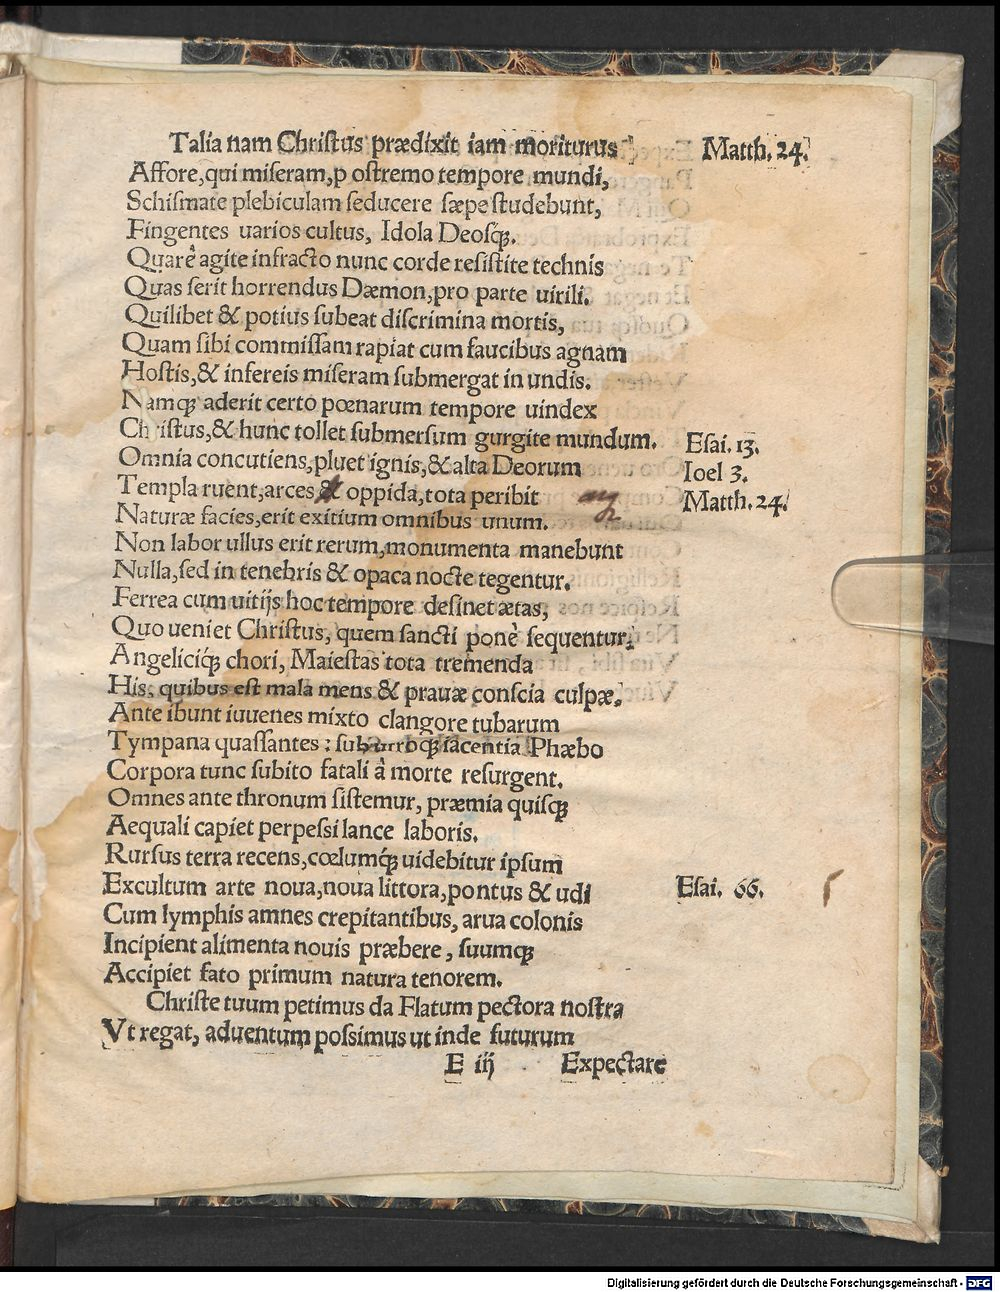 Talia nam Christus prædixit iam moriturus Matth. 24.
Affore, qui miseram, p ostremo tempore mundi,
Schismate plebiculam seducere sæpe studebunt,
Fingentes uarios cultus, Idola Deosq́;.
Quarê agite infracto nunc corde resistite technis
Quas serit horrendus Dæmon, pro parte uirili.
Quilibet & potius subeat discrimina mortis,
Quam sibi commissam rapiat cum faucibus agnam
Hostis, & infereis miseram submergat in undis.
Namq; aderit certo pœnarum tempore uindex
Christus, & hunc tollet submersum gurgite mundum. Esai. 13.
Omnia concutiens, pluet ignis, & alta Deorum Ioel 3.
Templa ruent, arces & oppida, tota peribit Matth. 24.
Naturæ facies, erit exitium omnibus unum.
Non labor ullus erit rerum, monumenta manebunt
Nulla, sed in tenebris & opaca nocte tegentur.
Ferrea cum uitijs hoc tempore desinet ætas,
Quo ueniet Christus, quem sancti ponè sequentur,
Angeliciq́; chori, Maiestas tota tremenda
His, quibus est mala mens & prauæ conscia culpæ.
Ante ibunt iuuenes mixto clangore tubarum
Tympana quassantes: sub iacentia Phæbo
Corpora tunc subito fatali â morte resurgent.
Omnes ante thronum sistemur, præmia quisq;
Aequali capiet perpessi lance laboris.
Rursus terra recens, cœlumq́; uidebitur ipsum
Excultum arte noua, noua littora, pontus & udi Esai. 66.
Cum lymphis amnes crepitantibus, arua colonis
Incipient alimenta nouis præbere, suumq;
Accipiet fato primum natura tenorem.
Christe tuum petimus da Flatum pectora nostra
Vt regat, aduentum possimus ut inde futurum
E iij Expectare
Digitalisierung gefördert durch die Deutsche Forschungsgemeinschaft - DFG